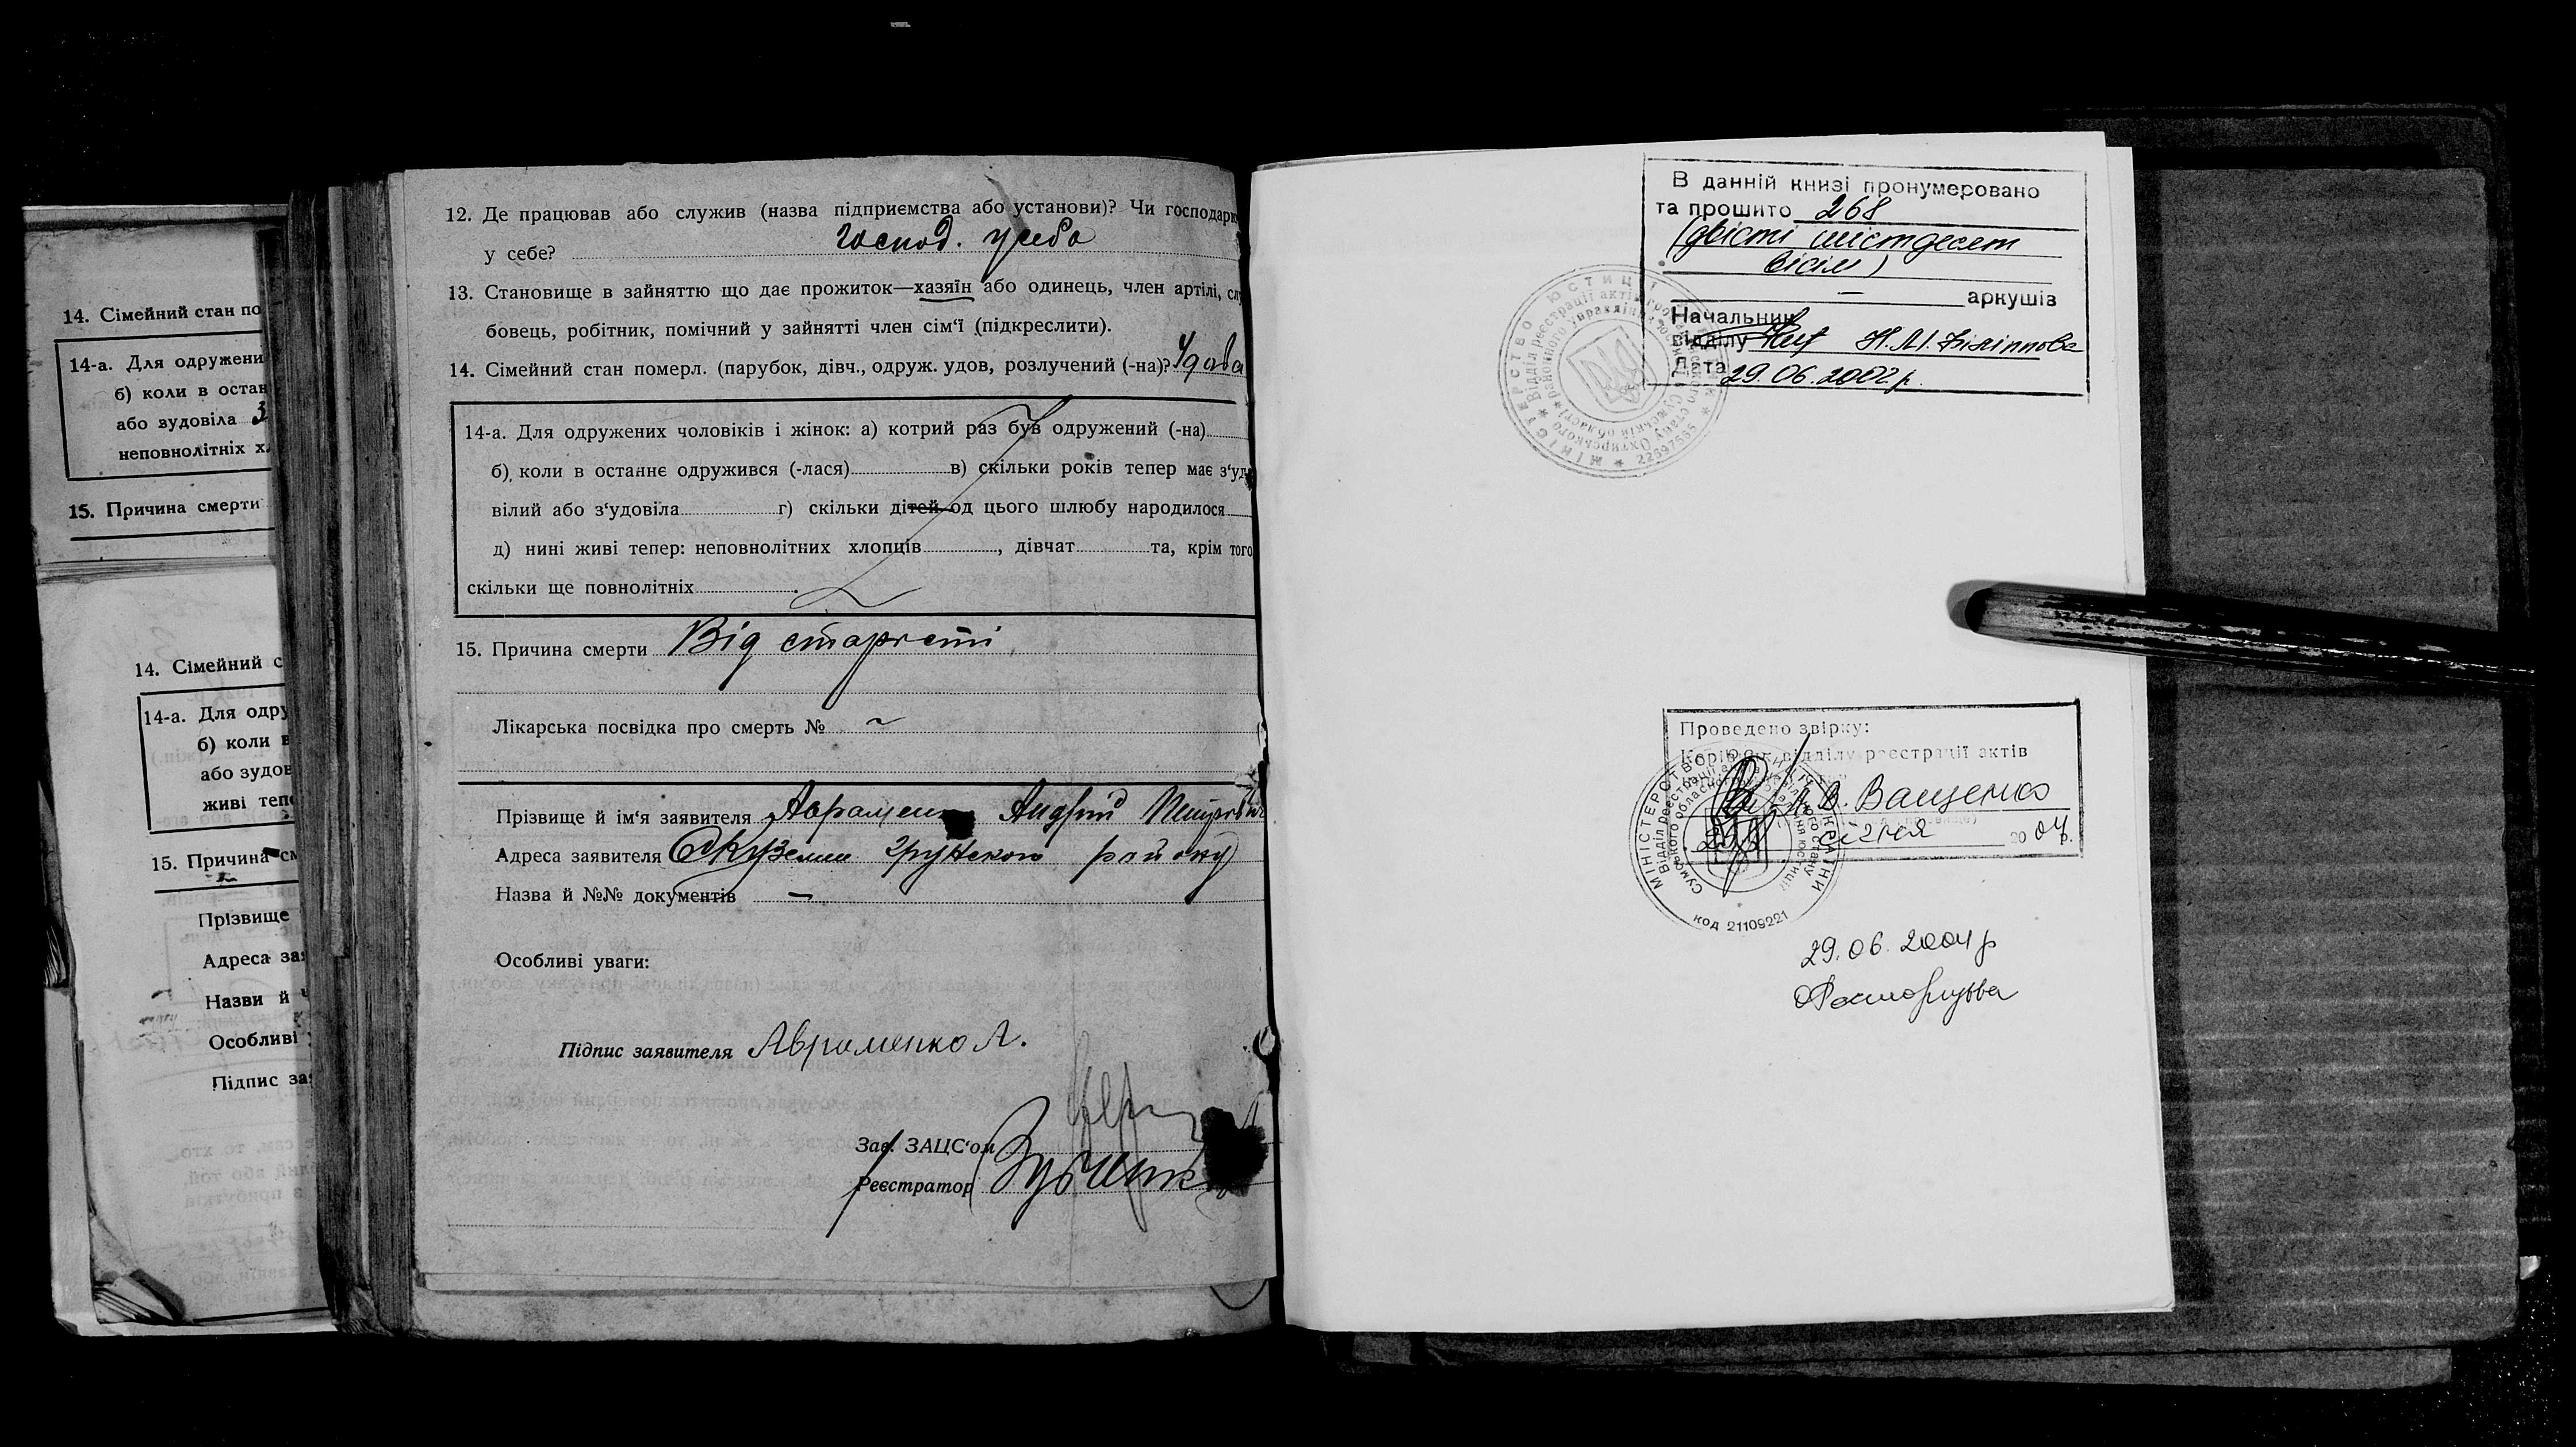 14. Сімейний стан по
14-а. Для одружени
б) коли в остан
або зудовіла З
неповнолітніх хл
15. Причина смерти
14. Сімейний с
14-а. Для одру
б) коли в
або зудов
живі тепе
15. Причина см
Прізвище
Адреса зая
Назви й
Особливі
Підпис зая
12. Де працював або служив (назва підприємства або установи)? Чи господарю
у себе? господ. у себе
13. Становище в зайняттю що дає прожиток—хазяїн або одинець, член артілі, слу
бовець, робітник, помічний у зайнятті член сім‘ї (підкреслити).
14. Сімейний стан померл. (парубок, дівч., одруж. удов, розлучений (-на)? Удова
14-а. Для одружених чоловіків і жінок: а) котрий раз був одружений (-на)
б) коли в останнє одружився (-лася) в) скільки років тепер має з‘удо
вілий або з‘удовіла г) скільки дітей од цього шлюбу народилося
д) нині живі тепер: неповнолітних хлопців , дівчат та, крім того
скільки ще повнолітніх .
15. Причина смерти Від старости
Лікарська посвідка про смерть № ~
Прізвище й ім‘я заявителя Авраменко Андрій Петрович
Адреса заявителя Грунського району
Назва й №№ документів —
Особливі уваги:
Підпис заявителя Авраменко А.
Зав. ЗАЦС‘ом
Реєстратор
В данній книзі пронумеровано
та прошито 268
(двісті шістдесят
вісім)
— аркушів
Начальник
відділу Н.М. Філіппова
Дата 29.06.2002 р.
22597555
Проведено звірку:
відділу реєстрації актів
Л.В. Ващенко
січня 2004 р.
код 21109221
29.06.2004 р